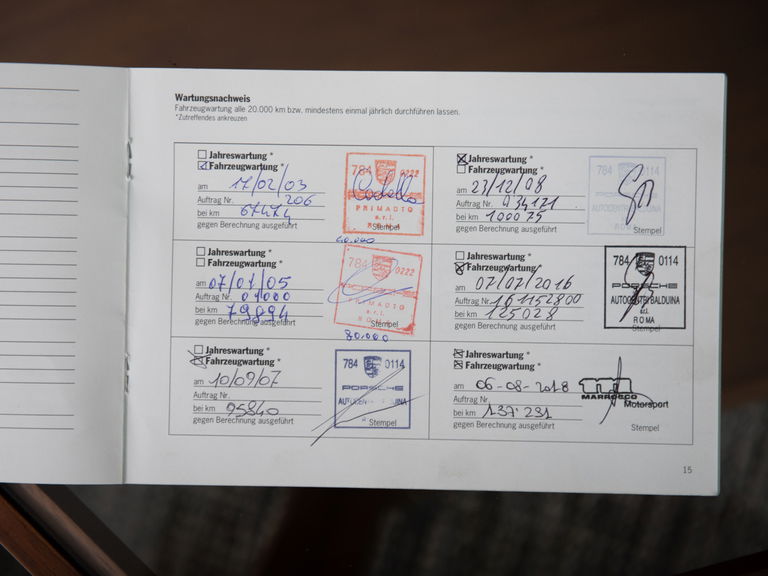 Wartungsnachweis
Fahrzeugwartung alle 20.000 km bzw. mindestens einmal jährlich durchführen lassen.
*Zutreffendes ankreuzen
Jahreswartung *
Fahrzeugwartung *
am 17/02/03
Auftrag Nr. 206
bei km 67474
gegen Berechnung ausgeführt
784 0222
PRIMADIO
s.r.l.
ROMA
Stempel
60.000
Jahreswartung *
Fahrzeugwartung *
am 07/01/05
Auftrag Nr. 01000
bei km 79894
gegen Berechnung ausgeführt
784 0222
PORSCHE
PRIMADIO
s.r.l.
Stempel
80.000
Jahreswartung *
Fahrzeugwartung *
am 10/09/07
Auftrag Nr.
bei km 95840
gegen Berechnung ausgeführt
784 0114
PORSCHE
Stempel
Jahreswartung *
Fahrzeugwartung *
am 23/12/08
Auftrag Nr.
bei km 100075
gegen Berechnung ausgeführt
784 0114
PORSCHE
AUTOCENTRI BALDUINA
Stempel
Jahreswartung *
Fahrzeugwartung *
am 07/07/2016
Auftrag Nr. 161152800
bei km 125028
gegen Berechnung ausgeführt
784 0114
PORSCHE
AUTOCENTRI BALDUINA
s.r.l.
ROMA
Stempel
Jahreswartung *
Fahrzeugwartung *
am 06-08-2018
Auftrag Nr.
bei km 137.231
gegen Berechnung ausgeführt
MARROCCO
Motorsport
Stempel
15